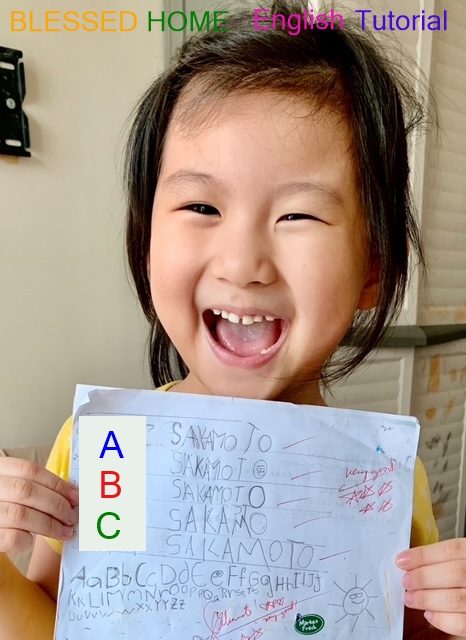 BLESSED HOME English Tutorial
A
B
C
SAKAMOTO
SAKAMOT
SAKAMOTO
SAKAMO
SAKAMOTO
very good
AaBbCcDdEeFfGgHhIiJj
KkLlMmNnOoPpQqRrSsTt
UuVvWwXxYyZz
Market
Fresh